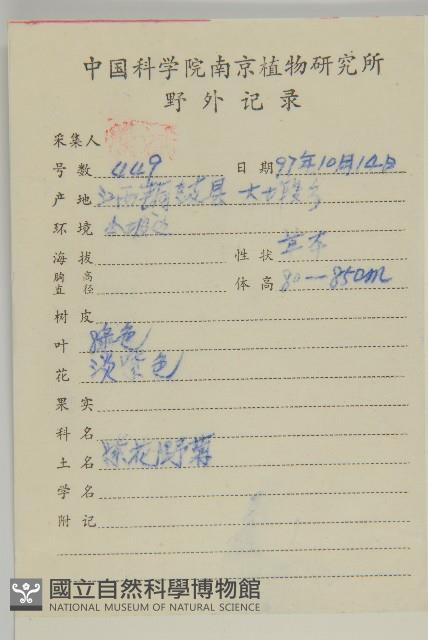 中国科学院南京植物研究所
野外记录
采集人
号数 449 日期 97年10月14日
产地 江西 县 大
环境
海拔 性状 草本
胸高直径 体高 80—850m
树皮
叶 绿色
花 淡紫色
果实
科名
土名 野菊
学名
附记
國立自然科學博物館
NATIONAL MUSEUM OF NATURAL SCIENCE